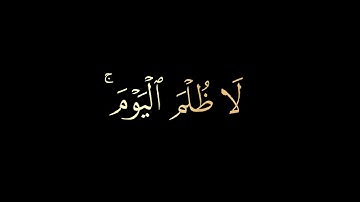 لَا ظُلْمَ ٱلْيَوْمَ ۚ